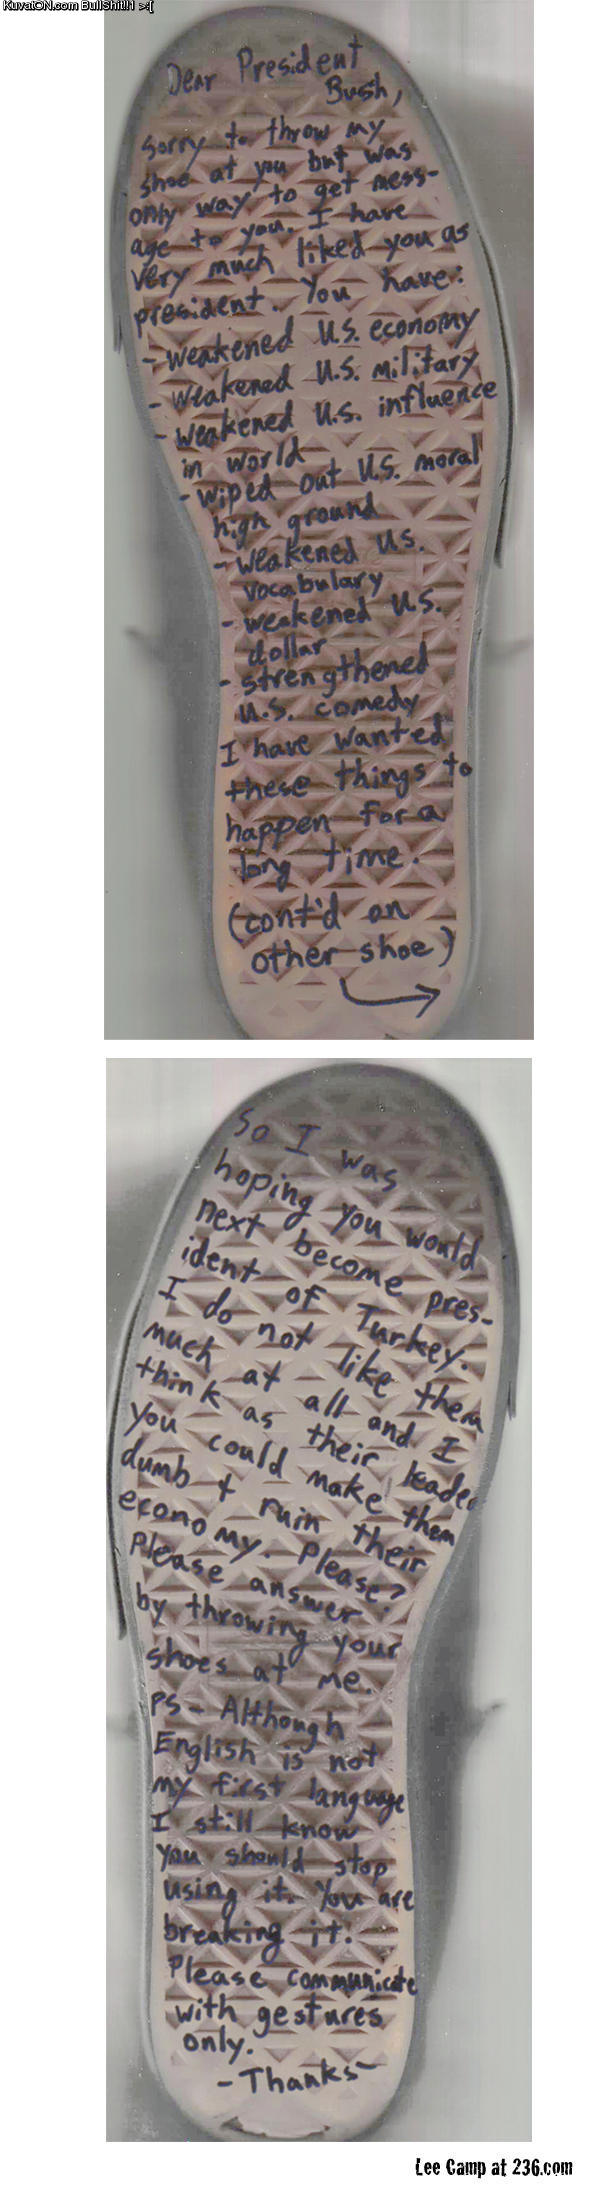 KuvatON.com BullShit!!1 >:[
Dear President
Bush,
sorry to throw my
shoe at you but was
only way to get mess-
age to you. I have
very much liked you as
president. You have:
- weakened U.S. economy
- weakened U.S. military
- weakened U.S. influence
in world
- wiped out U.S. moral
high ground
- weakened U.S.
vocabulary
- weakened U.S.
dollar
- strengthened
U.S. comedy
I have wanted
these things to
happen for a
long time.
(cont'd on
other shoe)
So I was
hoping you would
next become pres-
ident of Turkey.
I do not like them
much at all and I
think as their leader
you could make them
dumb + ruin their
economy. Please?
Please answer
by throwing your
shoes at me.
PS - Although
English is not
my first language
I still know
you should stop
using it. You are
breaking it.
Please communicate
with gestures
only.
- Thanks -
Lee Camp at 236.com